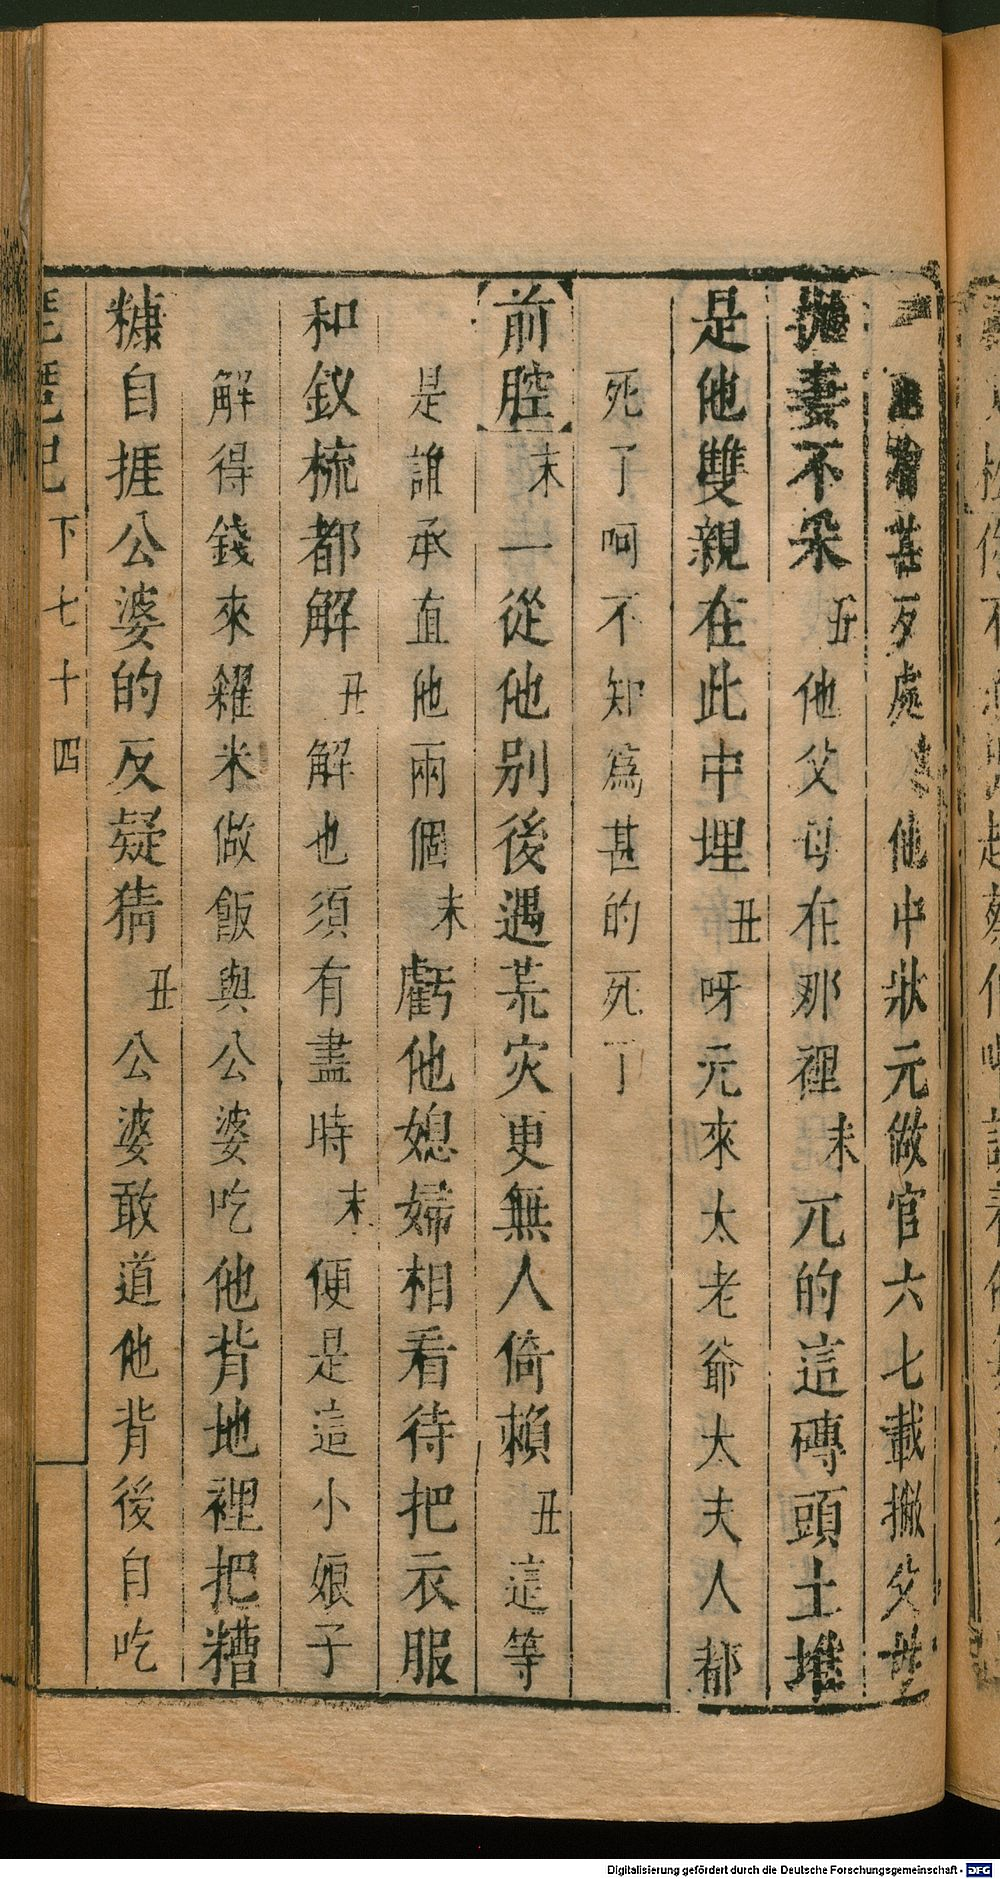 甚歹處他中狀元做官六七載撇父
拋妻不采丑他父母在那裡末兀的這磚頭土堆
是他雙親在此中埋丑呀元來太老爺太夫人都
死了呵不知為甚的死了
前腔末一從他別後遇荒灾更無人倚賴丑這等
是誰承直他兩個末虧他媳婦相看待把衣服
和釵梳都解丑解也須有盡時末便是這小娘子
解得錢來糴米做飯與公婆吃他背地裡把糟
糠自捱公婆的反疑猜丑公婆敢道他背後自吃
琵琶記 下 七十四
Digitalisierung gefördert durch die Deutsche Forschungsgemeinschaft - DFG